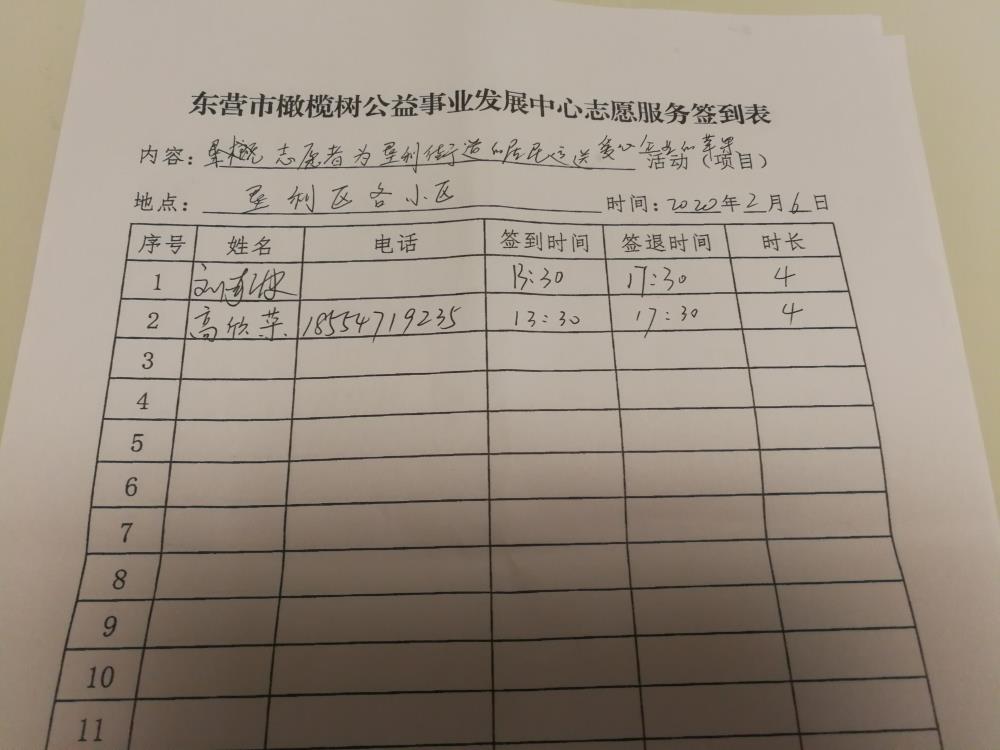 东营市橄榄树公益事业发展中心志愿服务签到表
内容：志愿者为垦利街道的居民运送爱心企业的苹果活动（项目）
地点：垦利区各小区 时间：2020年2月6日
序号 姓名 电话 签到时间 签退时间 时长
1 刘 13:30 17:30 4
2 高欣荣 18554719235 13:30 17:30 4
3
4
5
6
7
8
9
10
11